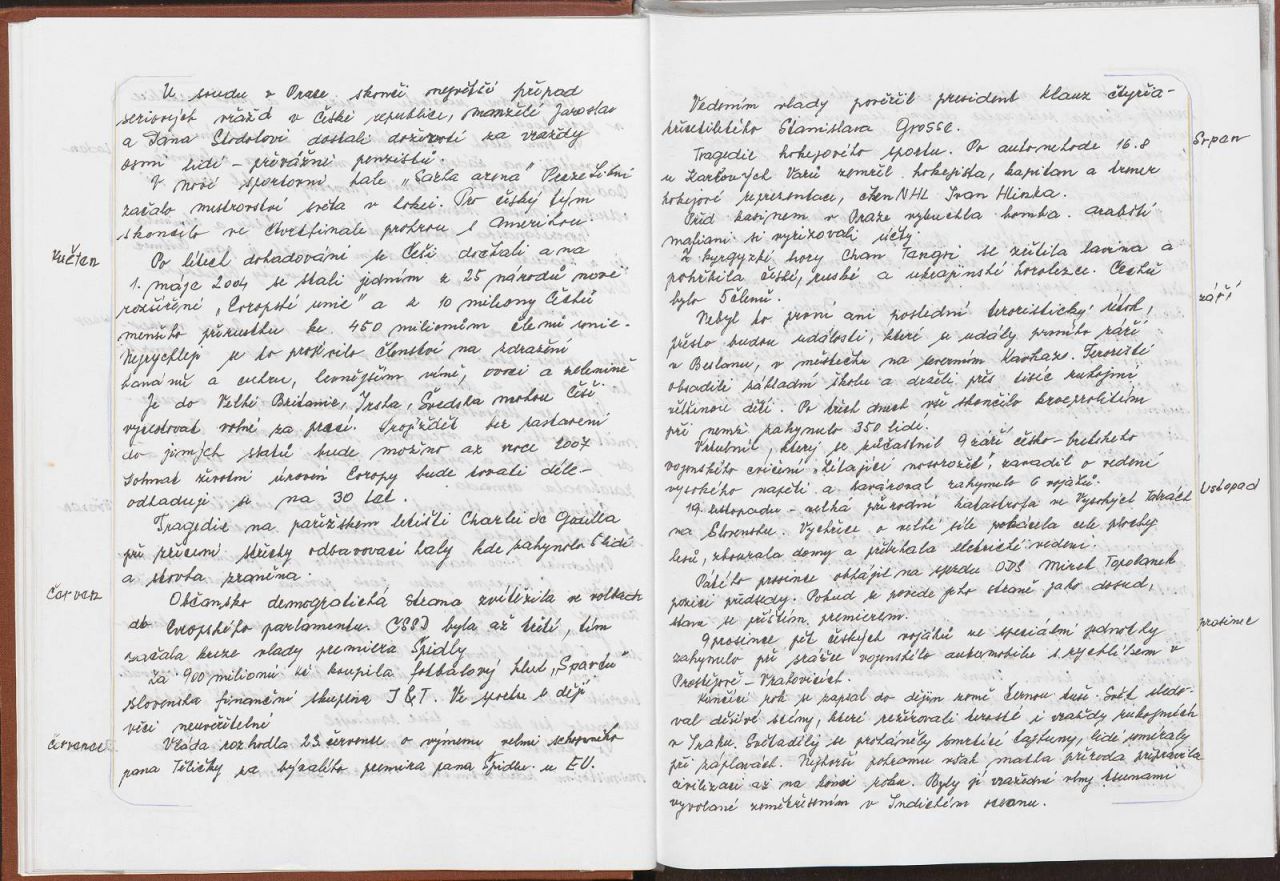 U soudu v Praze skončil největší případ
seriových vražd v České republice, manželé Jaroslav
a Dana Stodolovi dostali doživotí za vraždy
osmi lidí - převážně penzistů.
V nové sportovní hale „Sazka arena" Praze Libni
začalo mistrovství světa v hokeji. Pro český tým
skončilo ve čtvrtfinále prohrou s Amerikou.
Květen
Po létech dohadování se Češi dočkali a na
1. máje 2004 se stali jedním z 25 národů nově
rozšířené „Evropské unie" a z 10 miliony Čechů
menšího přírustku ke 450 milionům členů unie.
Nejrychleji se to projevilo členství na zdražení
banánů a cukru, levnějším víně, ovoci a zelenině
Je do Velké Britanie, Irska, Švédska mohou Češi
vycestovat volně za prací. Projíždět bez zastavení
do jiných států bude možno až roce 2007
Dohnat životní úroveň Evropy bude trvati déle-
odhadují se na 30 let.
Tragedie na pařížském letišti Charlie de Gaulla
při zřícení střechy odbavovací haly kde zahynulo 6 lidí
a stovka zraněna.
Červen
Občansko demogratická strana zvítězila ve volbách
do Evropského parlamentu. ČSSD byla až třetí, tím
začala krize vlady premiéra Špidly
Za 900 milionů Kč koupila fotbalový klub „Spartu"
slovenská finanční skupina J&T. Ve sportu se dějí
věci neuvěřitelné
Července
Vláda rozhodla 23. července o výměnu velmi schopného
pana Těličky za bývalého premiéra pana Špidlu u EU.
Vedením vlady pověřil president Klauz čtyřia-
třicetiletého Stanislava Grosse.
Srpen
Tragedie hokejového sportu. Po autonehodě 16.8
u Karlových Varů zemřel hokejista, kapitan a trener
hokejové reprezentace, člen NHL Ivan Hlinka.
Před kasinem v Praze vybuchla bomba. arabští
mafiani si vyřizovali účty.
Z kyrgyzké hory Chan Tangri se zřítila lavina a
pohřbila české, ruské a ukrajinské horolezce. Čechů
bylo 5 členů.
září
Nebyl to první ani poslední teroristický útok,
přesto budou události, které se udály prvního září
v Beslanu, v městečku na severním Kavkaze. Teroristé
obsadili základní školu a drželi přes tisíc rukojmí
většinou dětí. Po třech dnech vše skončilo krveprolitím
při němž zahynulo 350 lidí.
Vrtulník, který se zúčastnil 9 září česko-britského
vojenského cvičení „Létající nosorožec", zavadil o vedení
vysokého napětí a havaroval zahynulo 6 vojáků.
listopad
19. listopadu - velká přírodní katastrofa ve Vysokých Tatrách
na Slovensku. Vychřice o velké síle pokácela celé plochy
lesů, zbourala domy a přetrhala elektrické vedení.
Patého prosince obhájil na sjezdu ODS Mirek Topolanek
pozici předsedy. Pokud se povede jeho straně jako dosud,
stane se příštím premiérem.
prosinec
9 prosince pět českých vojáků ve speciální jednotky
zahynulo při srážce vojenského automobilu s rychlíkem v
Prostějově - Vrahovicích.
Končící rok se zapsal do dějin země černou tuší. Svět sledo-
val děsivé scény, které režírovali teroristé i vraždy rukojmích
v Iraku. Světadíly se proháněly smrtící tajfuny, lidé umírali
při záplavách. Nejhorší pohromu však matka příroda připravila
civilizaci až na konci roku. Byly jí vražedné vlny tsunami
vyvolané zemětřesením v Indickém oceanu.